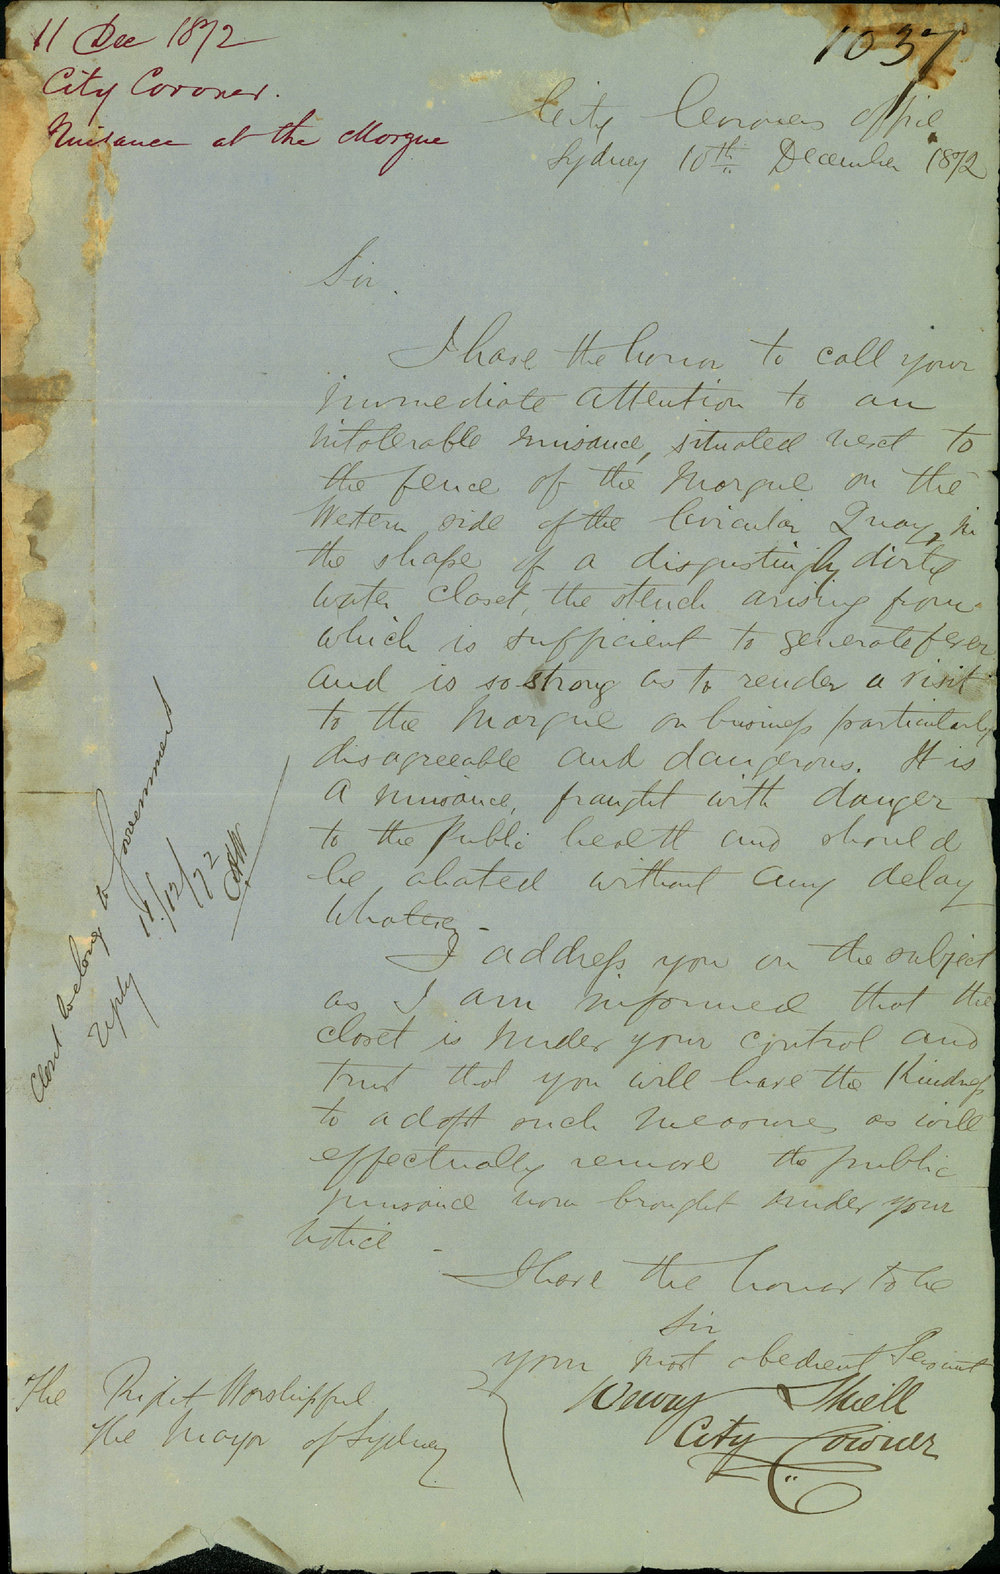 11 Dec 1872
City Coroner.
Nuisance at the Morgue
1037
City Coroners Office
Sydney 10th December 1872
Sir.
I have the honor to call your
immediate attention to an
intolerable nuisance, situated next to
the fence of the Morgue on the
Western side of the Circular Quay, in
the shape of a disgustingly dirty
water closet, the stench arising from
which is sufficient to generate fever
and is so strong as to render a visit
to the Morgue on business particularly
disagreeable and dangerous. It is
a nuisance, fraught with danger
to the public health and should
be abated without any delay
whatever -
I address you on the subject
as I am informed that the
closet is under your control and
trust that you will have the kindness
to adopt such measures as will
effectually remove the public
nuisance now brought under your
notice -
I have the honor to be
Sir
your most obedient Servant
Henry Shiell
City Coroner
The Right Worshipful
The Mayor of Sydney
Closet belong to Government
reply
11/12/72